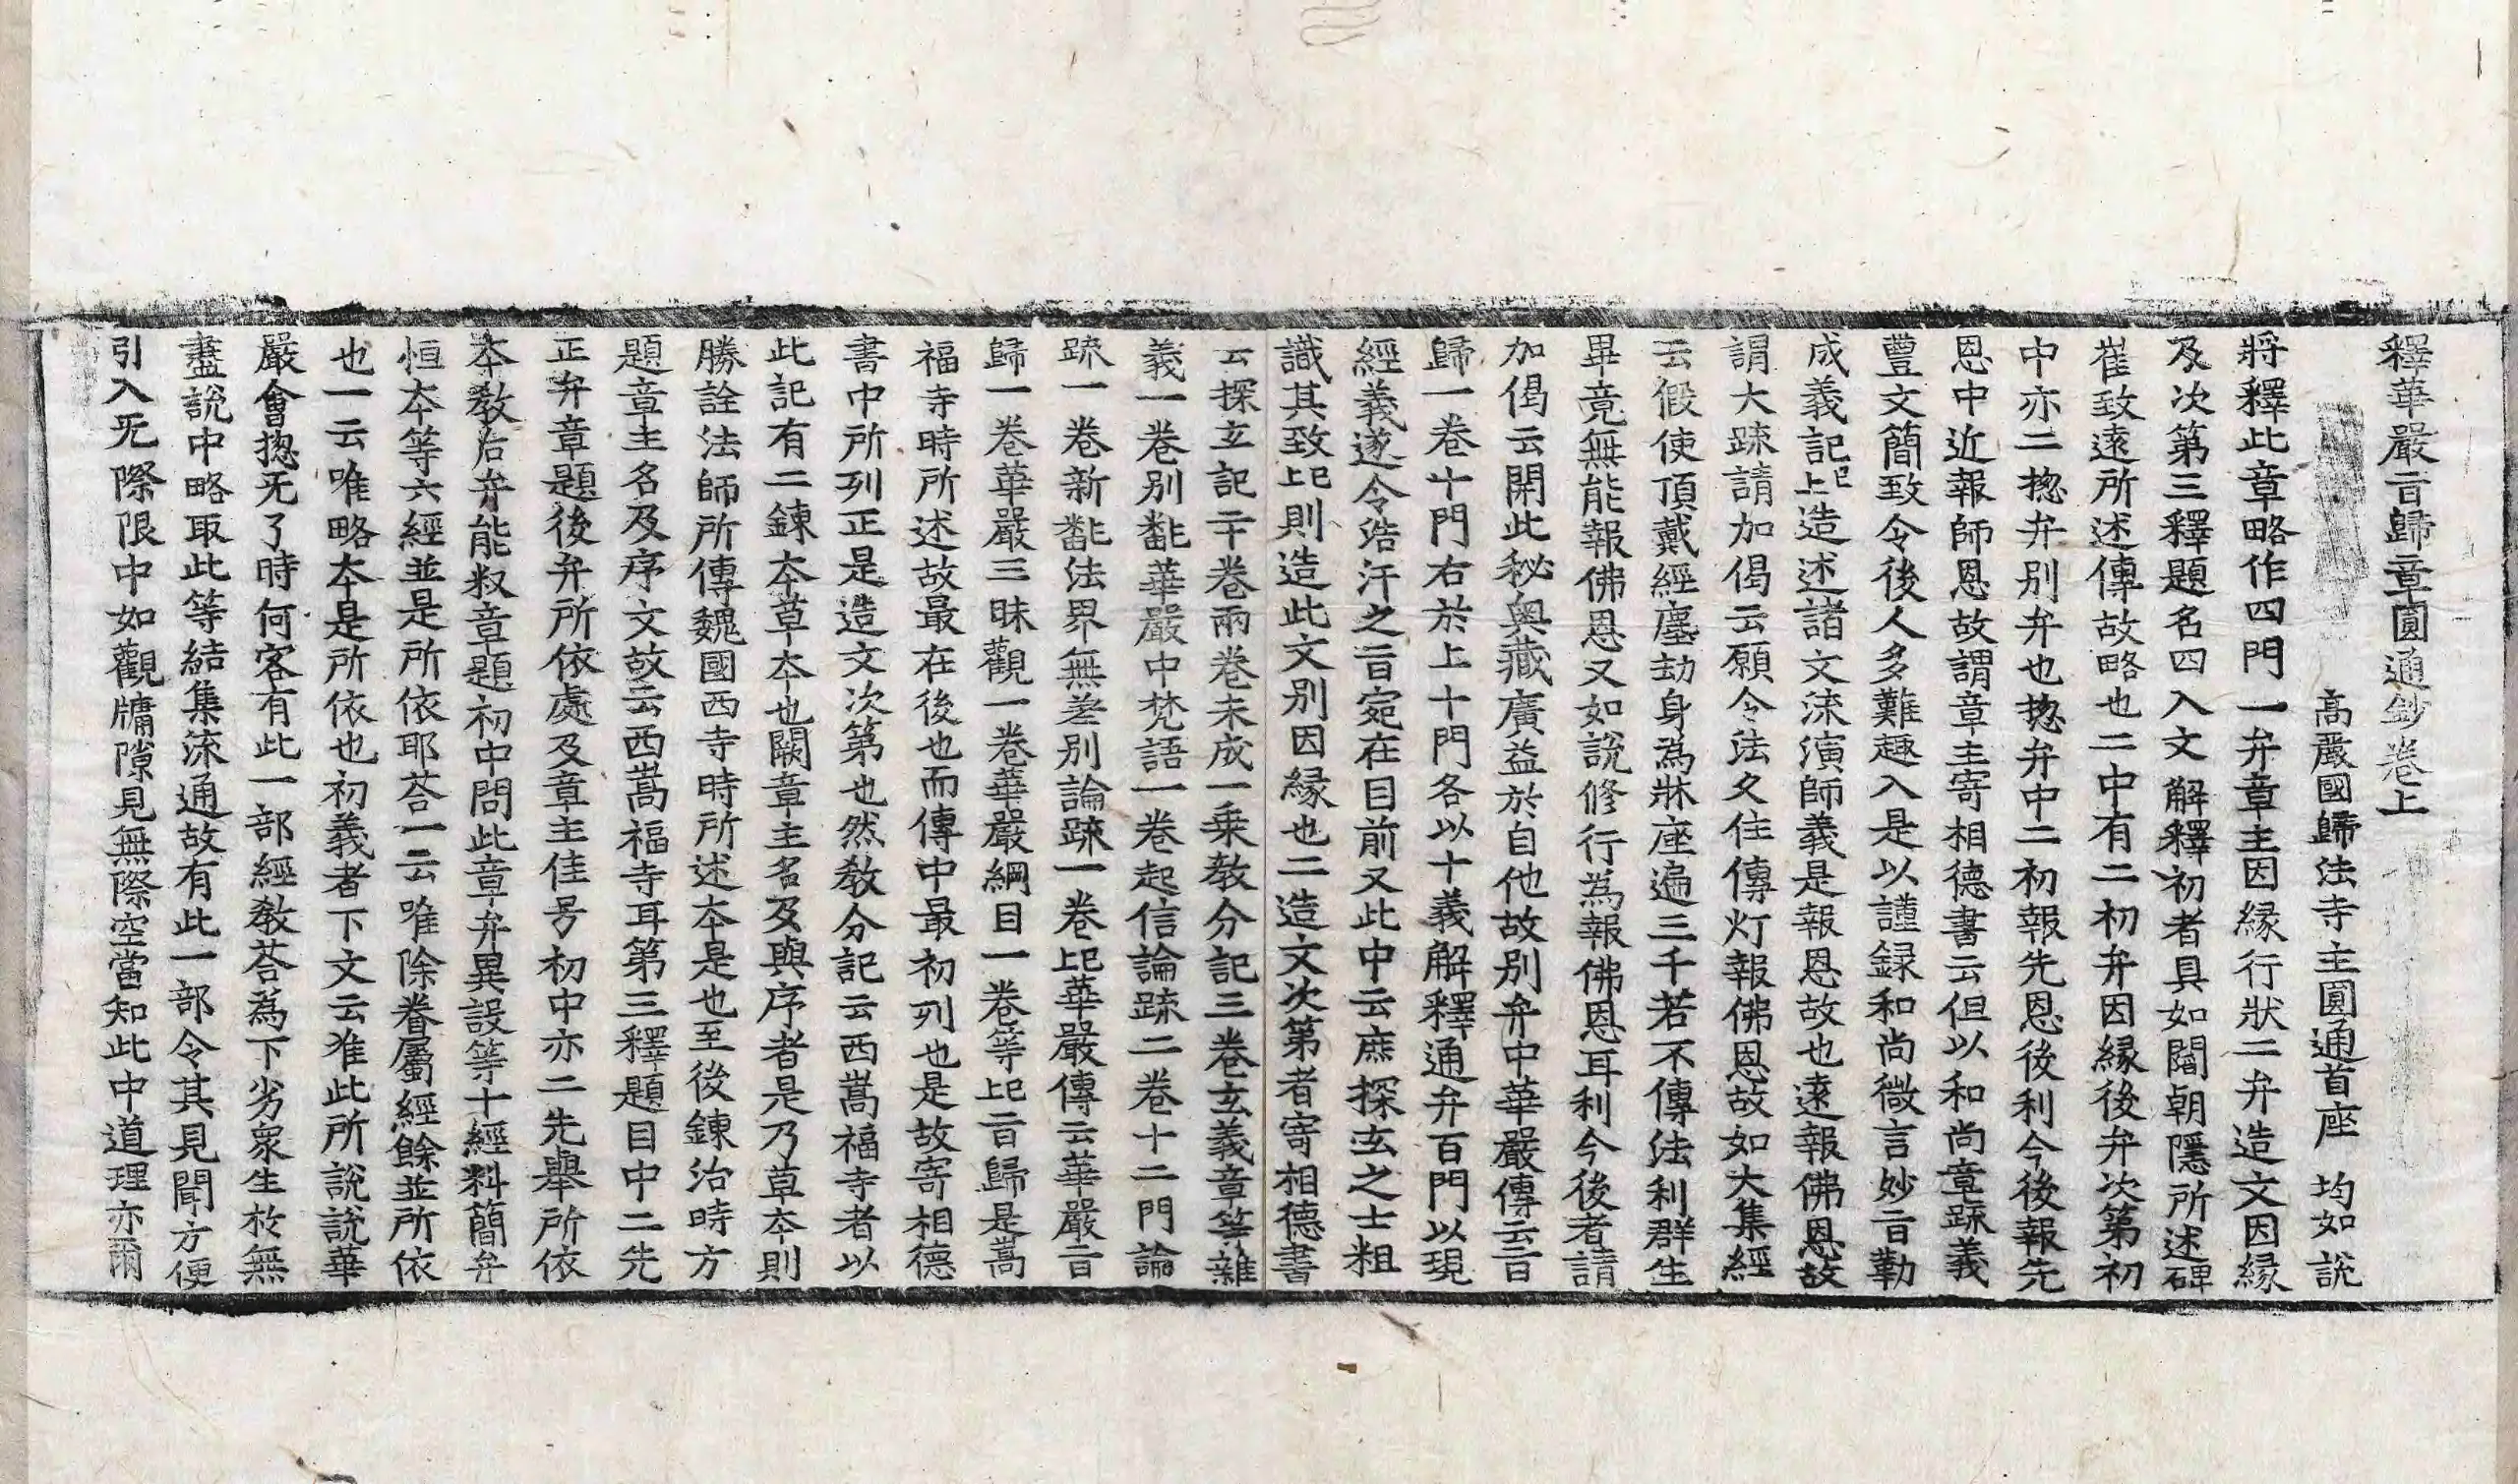 釋華嚴旨歸章圓通鈔卷上
高嚴國歸法寺主圓通首座 均如說
將釋此章略作四門一弁章主因緣行狀二弁造文因緣
及次第三釋題名四入文解釋初者具如閻朝隱所述碑
崔致遠所述傳故略也二中有二初弁因緣後弁次第初
中亦二揔弁別弁也揔弁中二初報先恩後利今後報先
恩中近報師恩故謂章主寄相德書云但以和尚章疏義
豊文簡致令後人多難趣入是以謹録和尚微言妙旨勒
成義記上已造述諸文流演師義是報恩故也遠報佛恩故
謂大疎請加偈云願令法久住傳灯報佛恩故如大集經
云假使頂戴經塵劫身為牀座遍三千若不傳法利群生
畢竟無能報佛恩又如說修行為報佛恩耳利今後者請
加偈云開此秘奥藏廣益於自他故別弁中華嚴傳云旨
歸一卷十門右於上十門各以十義解釋通弁百門以現
經義遂令浩汗之旨宛在目前又此中云庶探玄之士粗
識其致上已則造此文別因緣也二造文次第者寄相德書
云探玄記二十卷兩卷未成一乗教分記三卷玄義章等雜
義一卷別飜華嚴中梵語一卷起信論疏二卷十二門論
疏一卷新飜法界無差別論疏一卷上已華嚴傳云華嚴旨
歸一卷華嚴三昧觀一卷華嚴綱目一卷等上已旨歸是嵩
福寺時所述故最在後也而傳中最初列也是故寄相德
書中所列正是造文次第也然教分記云西嵩福寺者以
此記有二鍊本草本也闕章主名及與序者是乃草本則
勝詮法師所傳魏國西寺時所述本是也至後鍊治時方
題章主名及序文故云西嵩福寺耳第三釋題目中二先
正弁章題後弁所依處及章主佳号初中亦二先舉所依
本教后弁能釈章題初中問此章弁異設等十經料簡弁
恒本等六經並是所依耶荅一云唯除眷屬經餘並所依
也一云唯略本是所依也初義者下文云准此所說說華
嚴會揔无了時何客有此一部經教荅為下劣衆生於無
盡說中略取此等結集流通故有此一部令其見聞方便
引入无際限中如觀牖隙見無際空當知此中道理亦爾